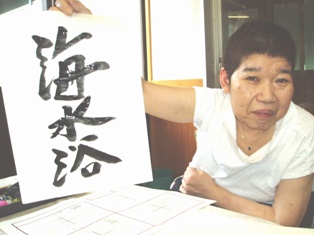 海水浴